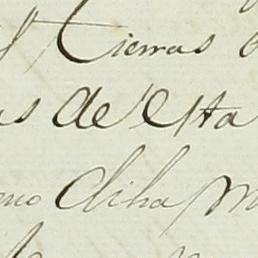 y Tierras
as de esta
dicha